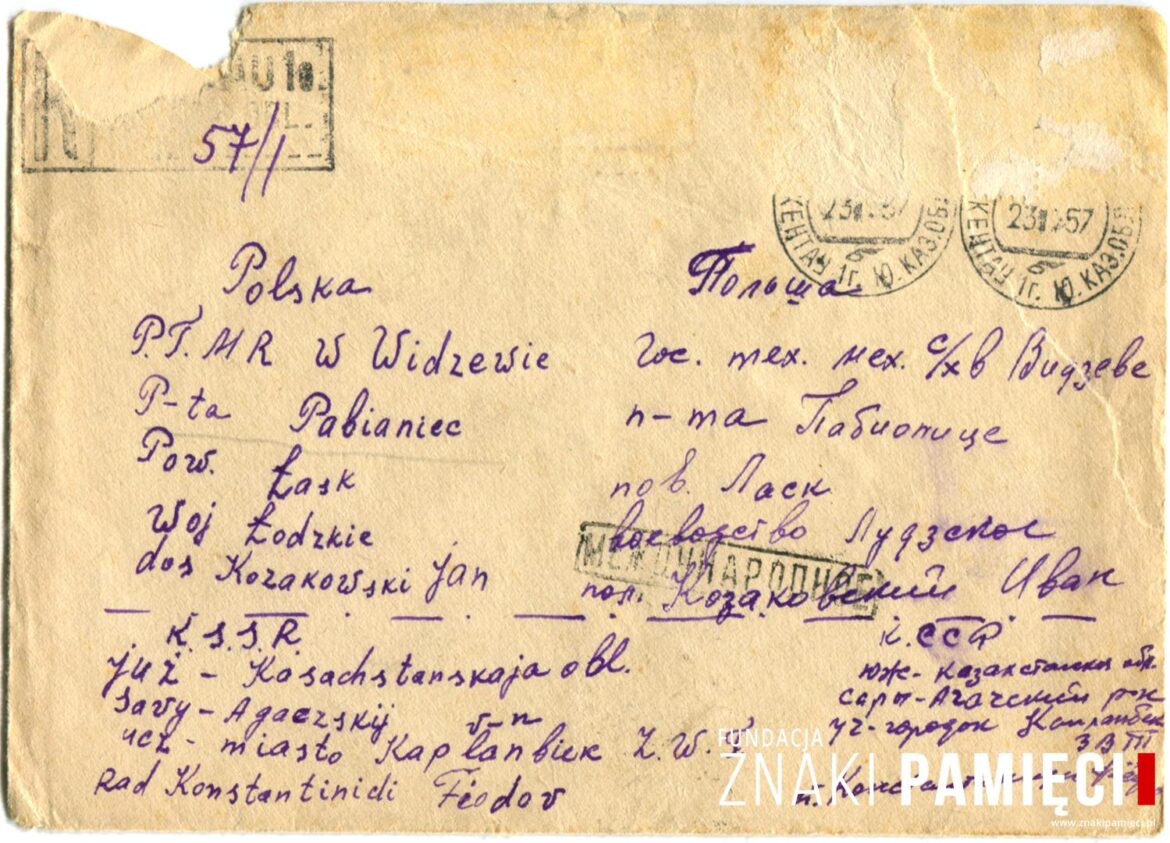 57/1
23 57
КЕНТАУ 1г. Ю. КАЗ.ОБЛ
23 57
КЕНТАУ 1г. Ю. КАЗ.ОБЛ
Polska
P.T.MR w Widzewie
P-ta Pabianiec
Pow. Łask
Woj Łodzkie
dos Kozakowski Jan
Польша
Гос. тех. мех. с/х в Видзеве
п-та Пабионице
пов. Ласк
воеводство Лудзское
пол. Козаковский Иван
МЕЖДУНАРОДНОЕ
K.S.S.R.
Juź - Kasachstanskaja obl.
Sary-Agaczskij r-n
ucz - miasto Kapłanbiek Z.W.T
nad Konstantinidi Fiodor
К.ССР
Юж-Казахстанская обл.
Сары-Агачский р-н
уч-городок Капланбек
ЗВТ
FUNDACJA
ZNAKI PAMIĘCI
www.znakipamieci.pl